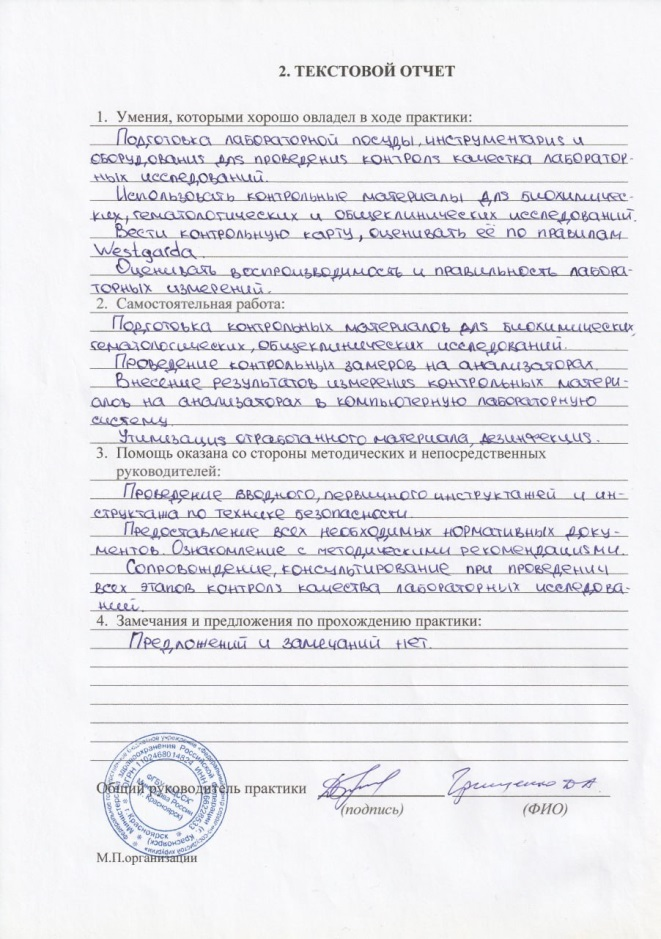 2. ТЕКСТОВОЙ ОТЧЕТ
1. Умения, которыми хорошо овладел в ходе практики:
Подготовка лабораторной посуды, инструментария и
оборудования для проведения контроля качества лаборатор-
ных исследований.
Использовать контрольные материалы для биохимичес-
ких, гематологических и общеклинических исследований.
Вести контрольную карту, оценивать её по правилам
Westgarda.
Оценивать воспроизводимость и правильность лабора-
торных измерений.
2. Самостоятельная работа:
Подготовка контрольных материалов для биохимических,
гематологических, общеклинических исследований.
Проведение контрольных замеров на анализаторах.
Внесение результатов измерения контрольных матери-
алов на анализаторах в компьютерную лабораторную
систему.
Утилизация отработанного материала, дезинфекция.
3. Помощь оказана со стороны методических и непосредственных
руководителей:
Проведение вводного, первичного инструктажей и ин-
структажа по технике безопасности.
Предоставление всех необходимых нормативных доку-
ментов. Ознакомление с методическими рекомендациями.
Сопровождение, консультирование при проведении
всех этапов контроля качества лабораторных исследова-
ний.
4. Замечания и предложения по прохождению практики:
Предложений и замечаний нет.
Общий руководитель практики
(подпись) (ФИО)
М.П.организации